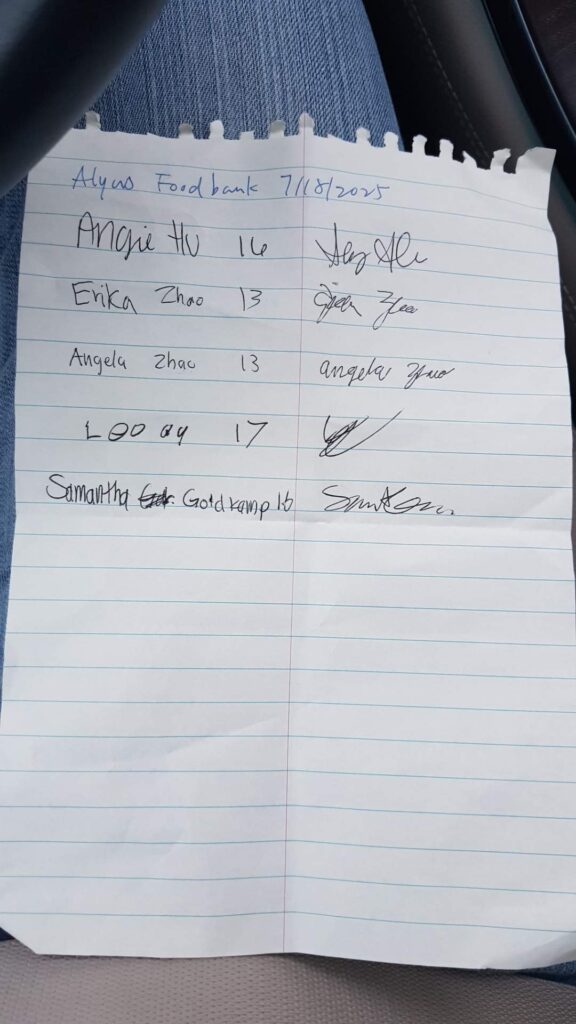 Alyws Foodbank 7/18/2025
Angie Hu 16
Erika Zhao 13
Angela Zhao 13 angela zhao
Leo 17
Samantha Goldkamp 16